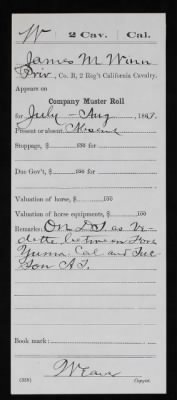 W | 2 Cav. | Cal.
James M Winn
Priv., Co. B, 2 Reg't California Cavalry.
Appears on
Company Muster Roll
for July - Aug, 1863.
Present or absent Absent
Stoppage, $ 100 for
Due Gov't, $ 100 for
Valuation of horse, $ 100
Valuation of horse equipments, $ 100
Remarks: On D.S. as Vi-
dette between Fort
Yuma Cal and Tuc
Son A.T.
Book mark:
(358)
Copyist.